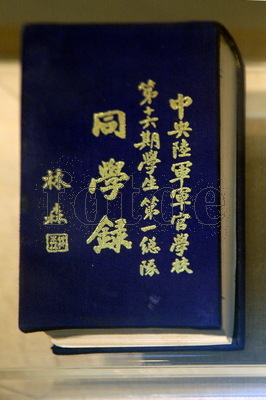 中央陸軍軍官學校
第十六期學生第一總隊
同學錄
林森
fotoe